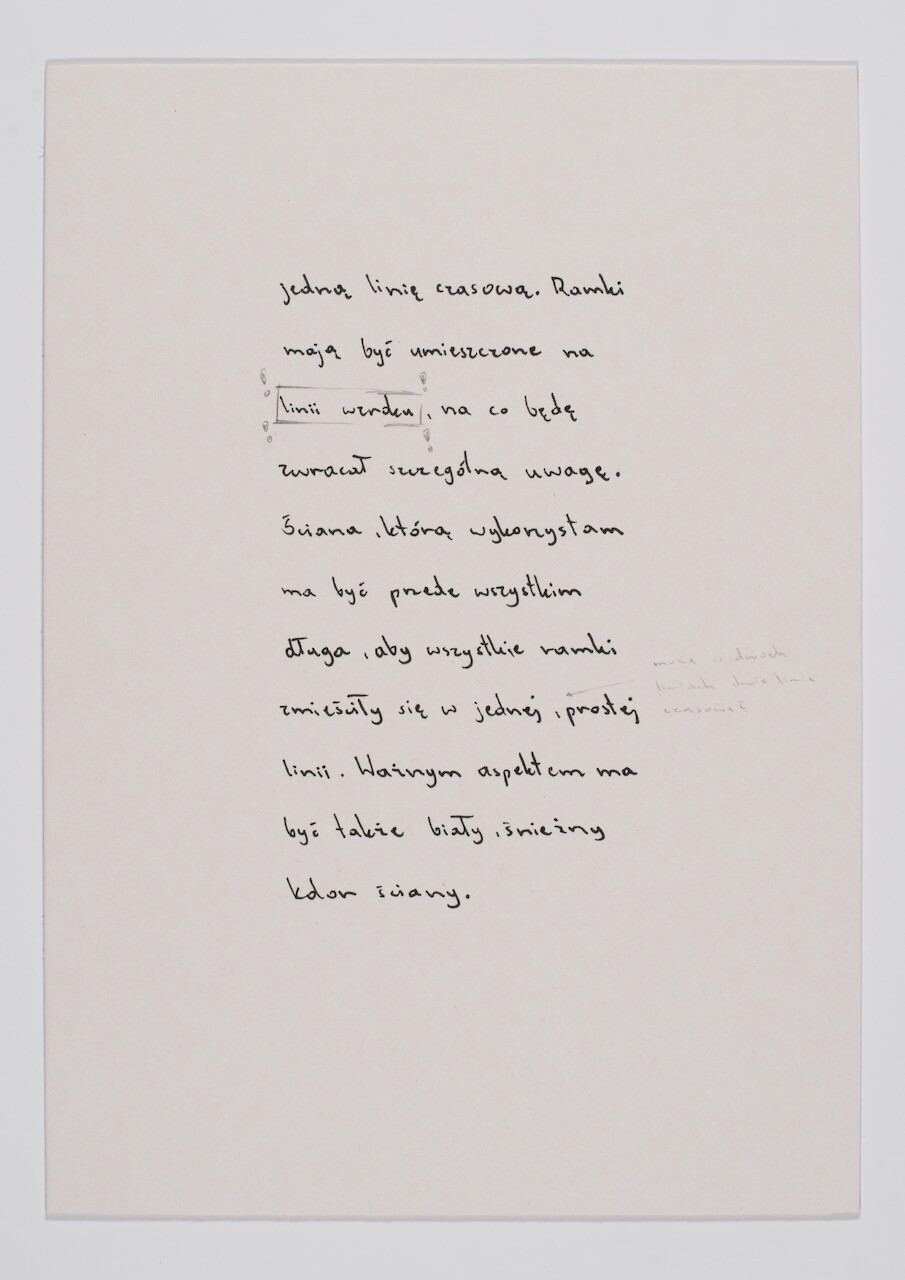 jedną linię czasową. Ramki
mają być umieszczone na
linii wzroku, na co będę
zwracał szczególną uwagę.
Ściana, którą wykorzystam
ma być przede wszystkim
długa, aby wszystkie ramki
zmieściły się w jednej, prostej
linii. Ważnym aspektem ma
być także biały, śnieżny
kolor ściany.
może w dwóch
liniach dwie linie
czasowe?